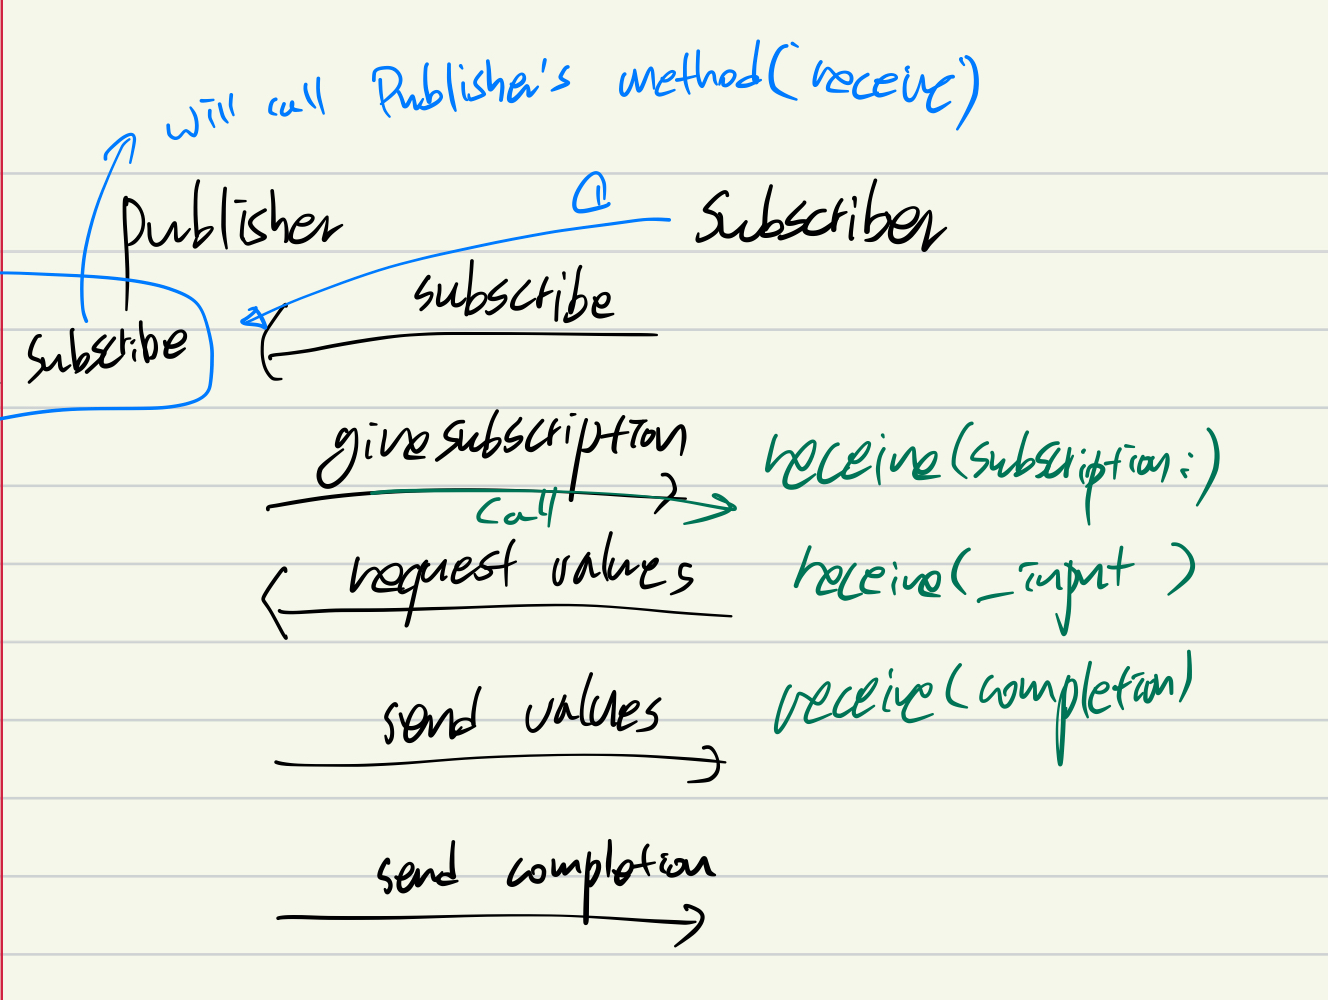 will call Publisher's method(receive)
①
Publisher Subscriber
subscribe
subscribe
give subscription
receive(subscription:)
call
request values
receive(_input )
send values
receive(completion)
send completion